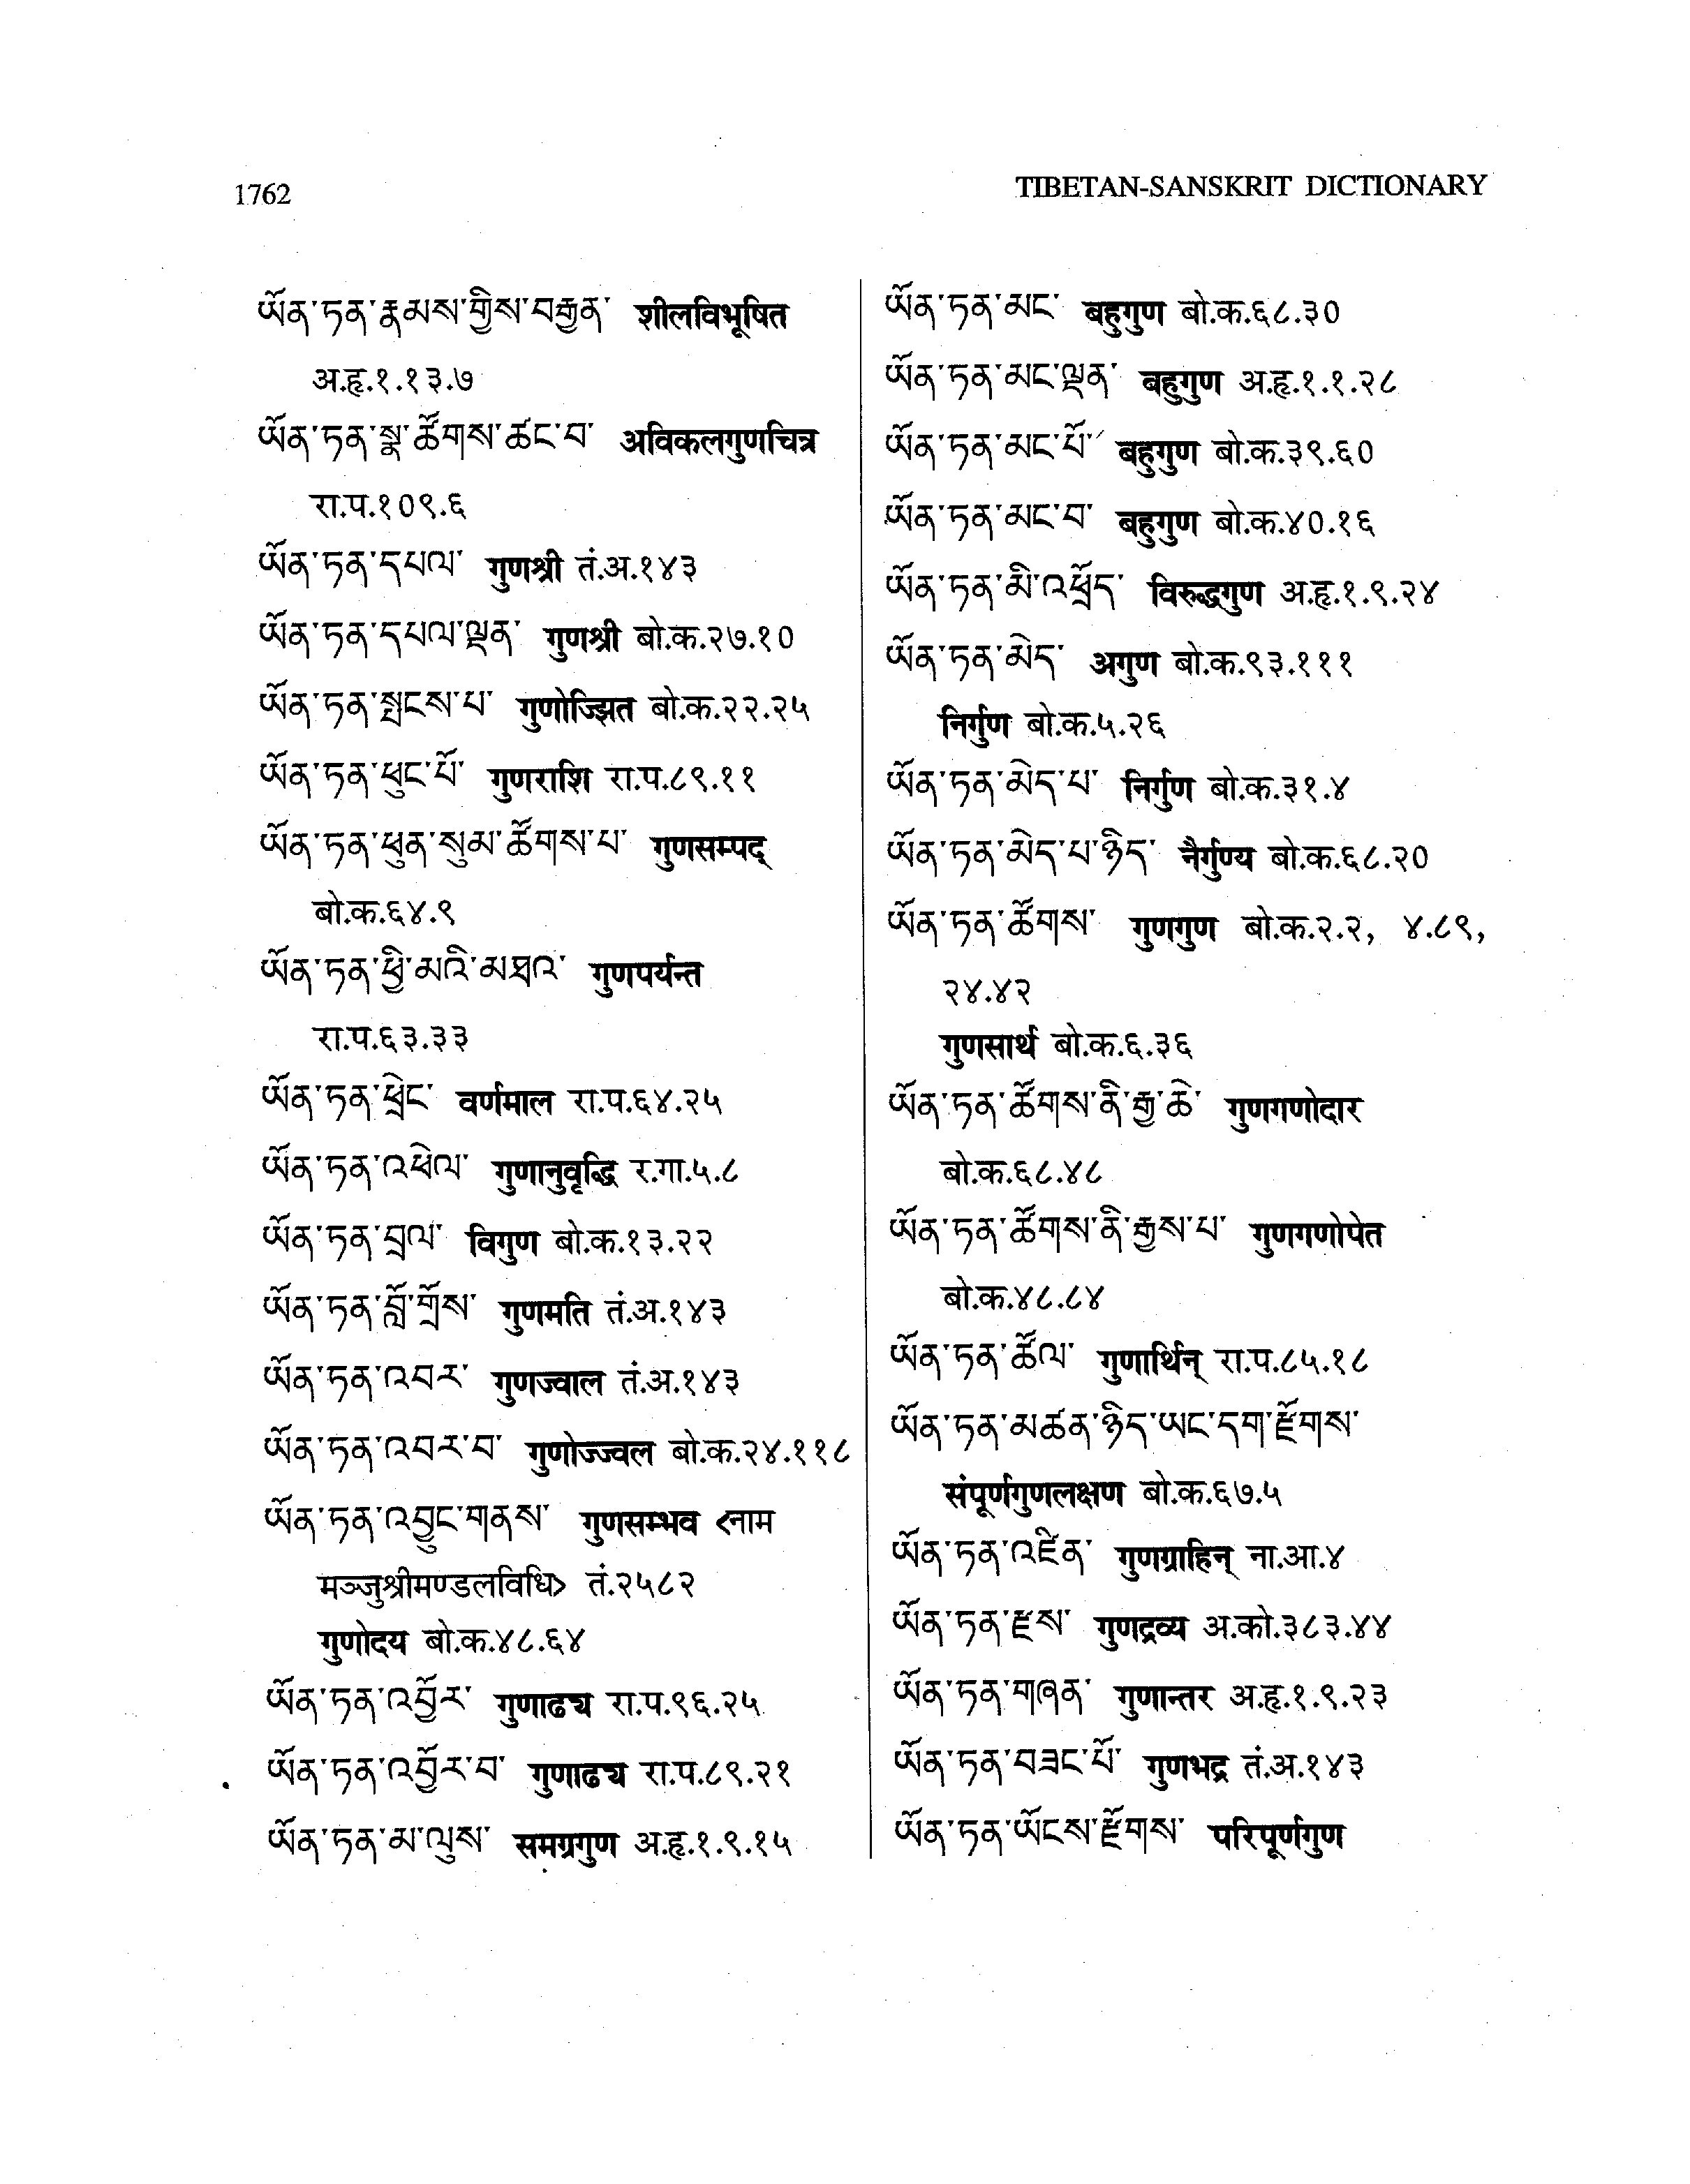 1762
TIBETAN-SANSKRIT DICTIONARY
ཡོན་ཏན་རྣམས་གྱིས་བརྒྱན་ शीलविभूषित
अ.हृ.१.१३.७
ཡོན་ཏན་སྣ་ཚོགས་ཚང་བ་ अविकलगुणचित्र
रा.प.१०९.६
ཡོན་ཏན་དཔལ་ गुणश्री तं.अ.१४३
ཡོན་ཏན་དཔལ་ལྡན་ गुणश्री बो.क.२७.१०
ཡོན་ཏན་སྤངས་པ་ गुणोज्झित बो.क.२२.२५
ཡོན་ཏན་ཕུང་པོ་ गुणराशि रा.प.८९.११
ཡོན་ཏན་ཕུན་སུམ་ཚོགས་པ་ गुणसम्पद्
बो.क.६४.९
ཡོན་ཏན་ཕྱི་མའི་མཐའ་ गुणपर्यन्त
रा.प.६३.३३
ཡོན་ཏན་ཕྲེང་ वर्णमाल रा.प.६४.२५
ཡོན་ཏན་འཕེལ་ गुणानुवृद्धि र.गा.५.८
ཡོན་ཏན་བྲལ་ विगुण बो.क.१३.२२
ཡོན་ཏན་བློ་གྲོས་ गुणमति तं.अ.१४३
ཡོན་ཏན་འབར་ गुणज्वाल तं.अ.१४३
ཡོན་ཏན་འབར་བ་ गुणोज्ज्वल बो.क.२४.११८
ཡོན་ཏན་འབྱུང་གནས་ गुणसम्भव <नाम
मञ्जुश्रीमण्डलविधि> तं.२५८२
गुणोदय बो.क.४८.६४
ཡོན་ཏན་འབྱོར་ गुणाढ्य रा.प.९६.२५
ཡོན་ཏན་འབྱོར་བ་ गुणाढ्य रा.प.८९.२१
ཡོན་ཏན་མ་ལུས་ समग्रगुण अ.हृ.१.९.१५
ཡོན་ཏན་མང་ बहुगुण बो.क.६८.३०
ཡོན་ཏན་མང་ལྡན་ बहुगुण अ.हृ.१.१.२८
ཡོན་ཏན་མང་པོ་ बहुगुण बो.क.३९.६०
ཡོན་ཏན་མང་བ་ बहुगुण बो.क.४०.१६
ཡོན་ཏན་མི་འཕྲོད་ विरुद्धगुण अ.हृ.१.९.२४
ཡོན་ཏན་མེད་ अगुण बो.क.९३.१११
निर्गुण बो.क.५.२६
ཡོན་ཏན་མེད་པ་ निर्गुण बो.क.३१.४
ཡོན་ཏན་མེད་པ་ཉིད་ नैर्गुण्य बो.क.६८.२०
ཡོན་ཏན་ཚོགས་ गुणगुण बो.क.२.२, ४.८९,
२४.४२
गुणसार्थ बो.क.६.३६
ཡོན་ཏན་ཚོགས་ནི་རྒྱ་ཆེ་ गुणगणोदार
बो.क.६८.४८
ཡོན་ཏན་ཚོགས་ནི་རྒྱས་པ་ गुणगणोपेत
बो.क.४८.८४
ཡོན་ཏན་ཚོལ་ गुणार्थिन् रा.प.८५.१८
ཡོན་ཏན་མཚན་ཉིད་ཡང་དག་རྫོགས་
संपूर्णगुणलक्षण बो.क.६७.५
ཡོན་ཏན་འཛིན་ गुणग्राहिन् ना.आ.४
ཡོན་ཏན་རྫས་ गुणद्रव्य अ.को.३८३.४४
ཡོན་ཏན་གཞན་ गुणान्तर अ.हृ.१.९.२३
ཡོན་ཏན་བཟང་པོ་ गुणभद्र तं.अ.१४३
ཡོན་ཏན་ཡོངས་རྫོགས་ परिपूर्णगुण